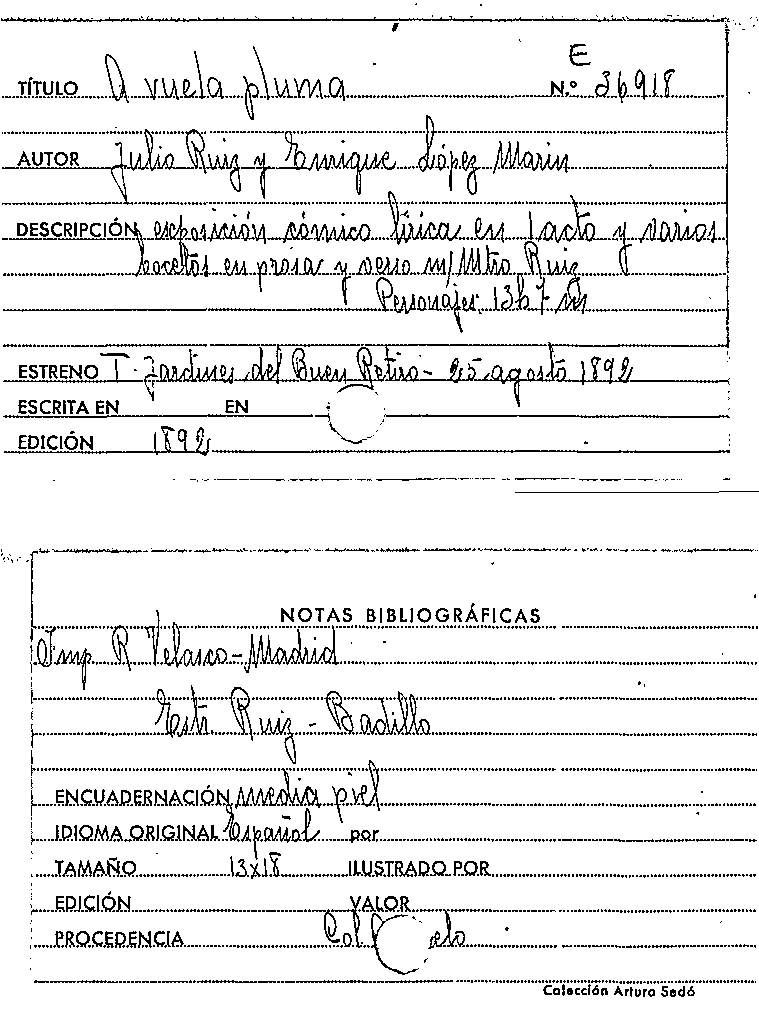 E
TÍTULO A vuela pluma N.º 36918
AUTOR Julio Ruiz y Enrique López Marin
DESCRIPCIÓN exposición cómico lírica en 1 acto y varios
bocetos en prosa y verso m/ Mtro Ruiz
Personajes. 13h 7 m
ESTRENO T. Jardines del Buen Retiro - 25 agosto 1892
ESCRITA EN EN
EDICIÓN 1892
NOTAS BIBLIOGRÁFICAS
Imp R Velasco - Madrid
Estr. Ruiz - Badillo
ENCUADERNACIÓN media piel
IDIOMA ORIGINAL Español por
TAMAÑO 13x18 ILUSTRADO POR
EDICIÓN VALOR
PROCEDENCIA Col
Colección Arturo Sedó